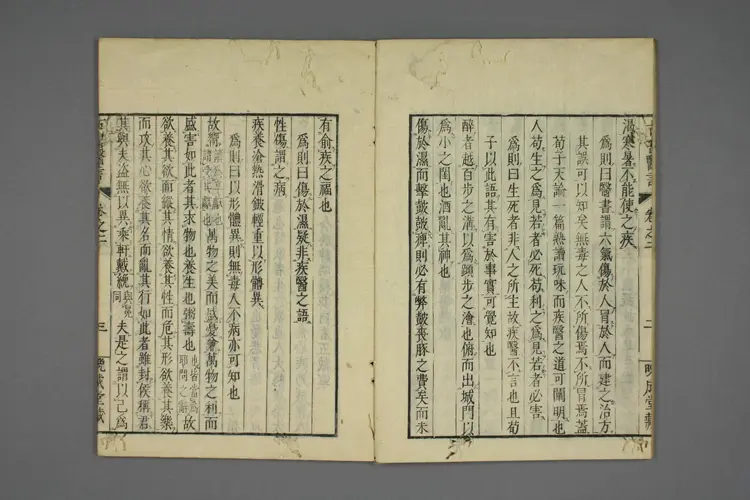 渴寒暑不能使之疾
爲則曰醫書謂六氣傷於人冒於人而建之治方
其誤可以知矣無毒之人不所傷焉不所冒焉蓋
荀子天論一篇熟讀玩味而疾醫之道可闡明也
人苟生之爲見若者必死苟利之爲見若者必害
爲則曰生死者非人之所主故疾醫不言也且荀
子以此語其有害於事實可覺知也
醉者越百步之溝以爲蹞步之澮也俯而出城門以
爲小之閨也酒亂其神也
傷於濕而擊鼓鼓痺則必有弊鼓喪豚之費矣而未
卷之二
二
有俞疾之福也
爲則曰傷於濕疑非疾醫之語
性傷謂之病
疾養滄熱滑鈹輕重以形體異
爲則曰以形體異則無毒人不病亦可知也
故嚮萬物之美而盛憂兼萬物之利而
盛害如此者其求物也養生也粥壽也故
欲養其欲而縱其情欲養其性而危其形欲養其樂
而攻其心欲養其名而亂其行如此者雖封侯稱君
其與夫盜無以異乘軒戴絻與冕同夫是之謂以己爲
卷之二
三